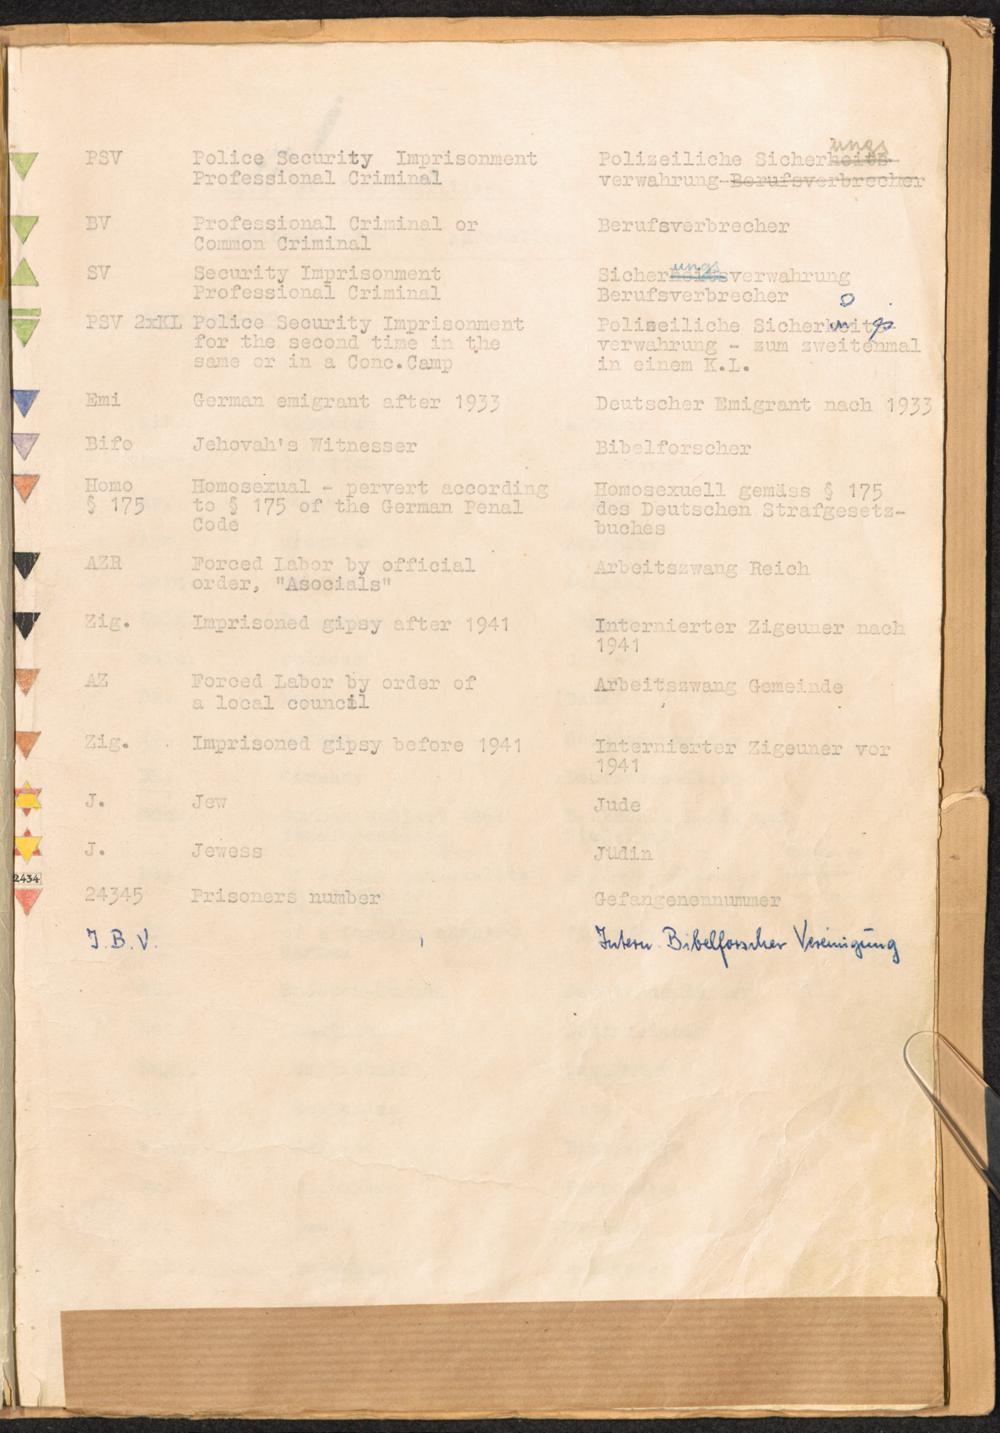 PSV Police Security Imprisonment Polizeiliche Sicherheits- ungs
Professional Criminal verwahrung-Berufsverbrecher
BV Professional Criminal or Berufsverbrecher
Common Criminal
SV Security Imprisonment Sicherheitsverwahrung ungs
Professional Criminal Berufsverbrecher
PSV 2xKL Police Security Imprisonment Polizeiliche Sicherheits-
for the second time in the verwahrung - zum zweitenmal
same or in a Conc.Camp in einem K.L.
Emi German emigrant after 1933 Deutscher Emigrant nach 1933
Bifo Jehovah's Witnesser Bibelforscher
Homo Homosexual - pervert according Homosexuell gemäss § 175
§ 175 to § 175 of the German Penal des Deutschen Strafgesetz-
Code buches
AZR Forced Labor by official Arbeitszwang Reich
order, "Asocials"
Zig. Imprisoned gipsy after 1941 Internierter Zigeuner nach
1941
AZ Forced Labor by order of Arbeitszwang Gemeinde
a local council
Zig. Imprisoned gipsy before 1941 Internierter Zigeuner vor
1941
J. Jew Jude
J. Jewess Jüdin
2434
24345 Prisoners number Gefangenennummer
J.B.V. Intern. Bibelforscher Vereinigung